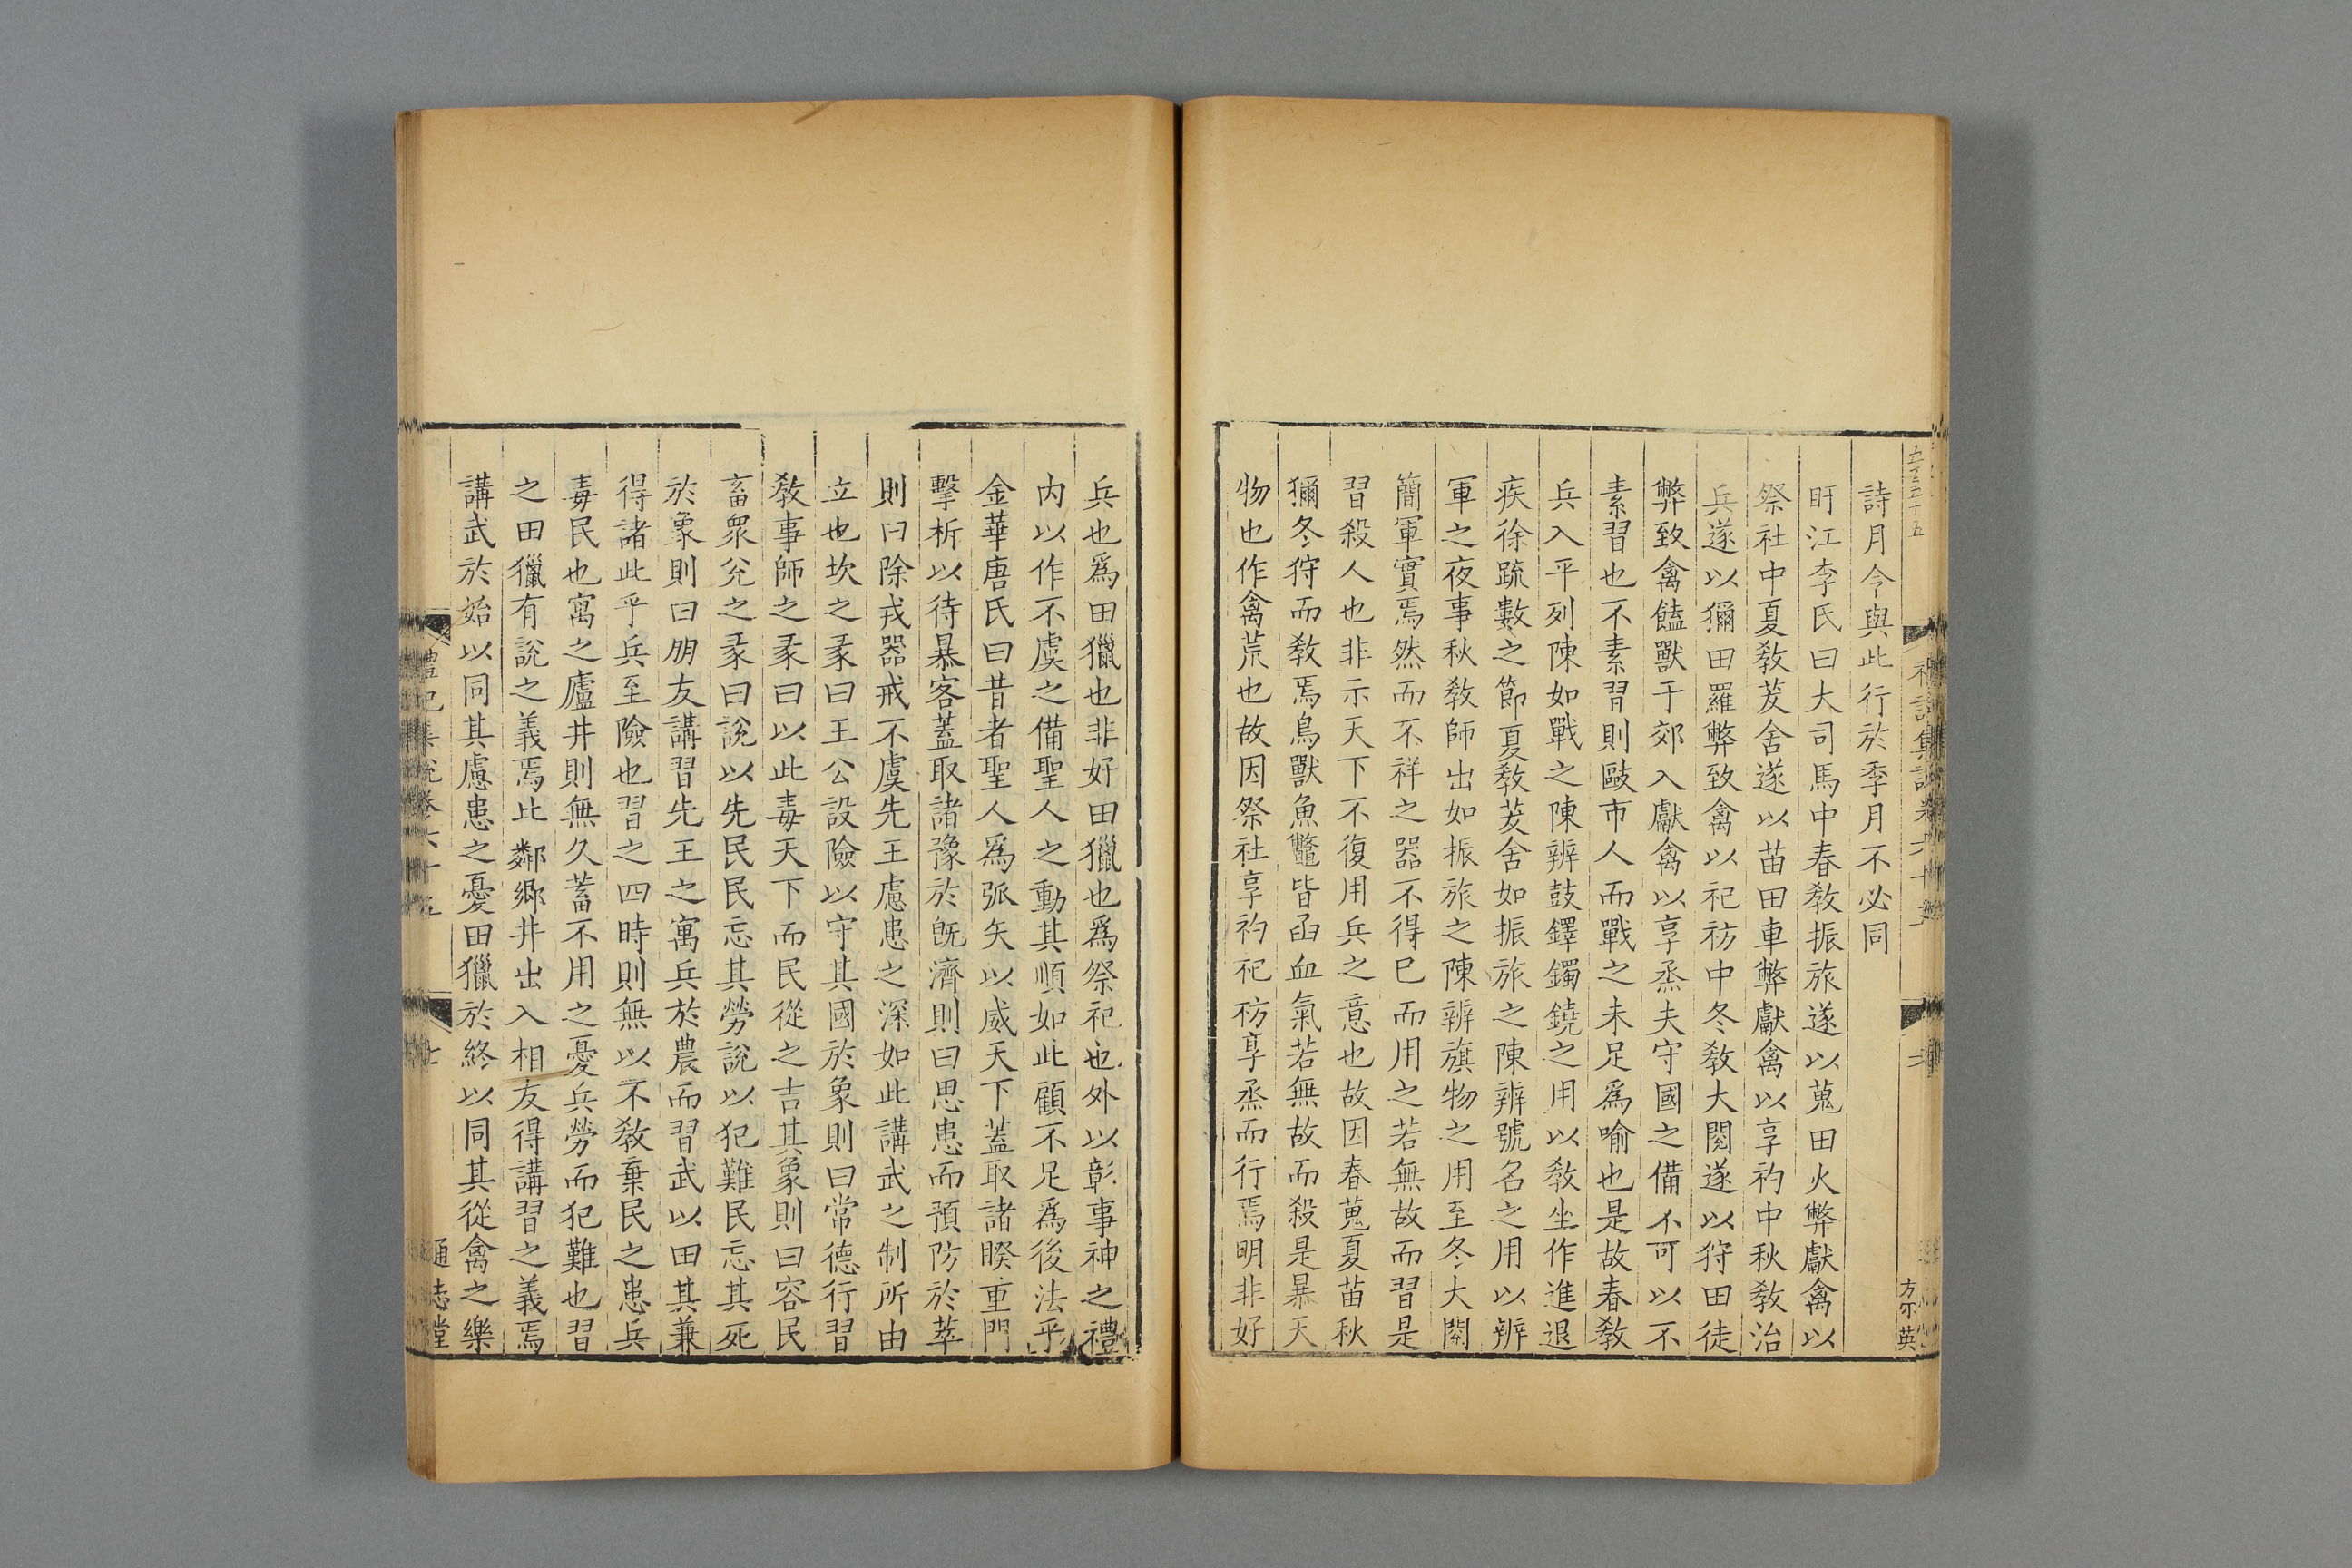 五百五十五
禮記集說卷六十五
方尓英
詩月令與此行於季月不必同
盱江李氏曰大司馬中春敎振旅遂以蒐田火弊獻禽以
祭社中夏敎茇舍遂以苗田車弊獻禽以享礿中秋敎治
兵遂以獮田羅弊致禽以祀祊中冬敎大閱遂以狩田徒
弊致禽饁獸于郊入獻禽以享烝夫守國之備不可以不
素習也不素習則敺市人而戰之未足爲喻也是故春敎
兵入平列陳如戰之陳辨鼓鐸鐲鐃之用以敎坐作進退
疾徐疏數之節夏敎茇舍如振旅之陳辨號名之用以辨
軍之夜事秋敎師出如振旅之陳辨旗物之用至冬大閱
簡軍實焉然而不祥之器不得已而用之若無故而習是
習殺人也非示天下不復用兵之意也故因春蒐夏苗秋
獮冬狩而敎焉鳥獸魚鼈皆函血氣若無故而殺是暴天
物也作禽荒也故因祭社享礿祀祊享烝而行焉明非好
兵也爲田獵也非好田獵也爲祭祀也外以彰事神之禮
内以作不虞之備聖人之動其順如此顧不足爲後法乎
金華唐氏曰昔者聖人爲弧矢以威天下蓋取諸睽重門
擊柝以待暴客蓋取諸豫於旣濟則曰思患而預防於萃
則曰除戎器戒不虞先王慮患之深如此講武之制所由
立也坎之彖曰王公設險以守其國於象則曰常德行習
敎事師之彖曰以此毒天下而民從之吉其象則曰容民
畜衆兊之彖曰說以先民民忘其勞說以犯難民忘其死
於象則曰朋友講習先王之寓兵於農而習武以田其兼
得諸此乎兵至險也習之四時則無以不敎棄民之患兵
毒民也寓之廬井則無久蓄不用之憂兵勞而犯難也習
之田獵有說之義焉比鄰鄉井出入相友得講習之義焉
講武於始以同其慮患之憂田獵於終以同其從禽之樂
禮記集說卷六十五
七
通志堂